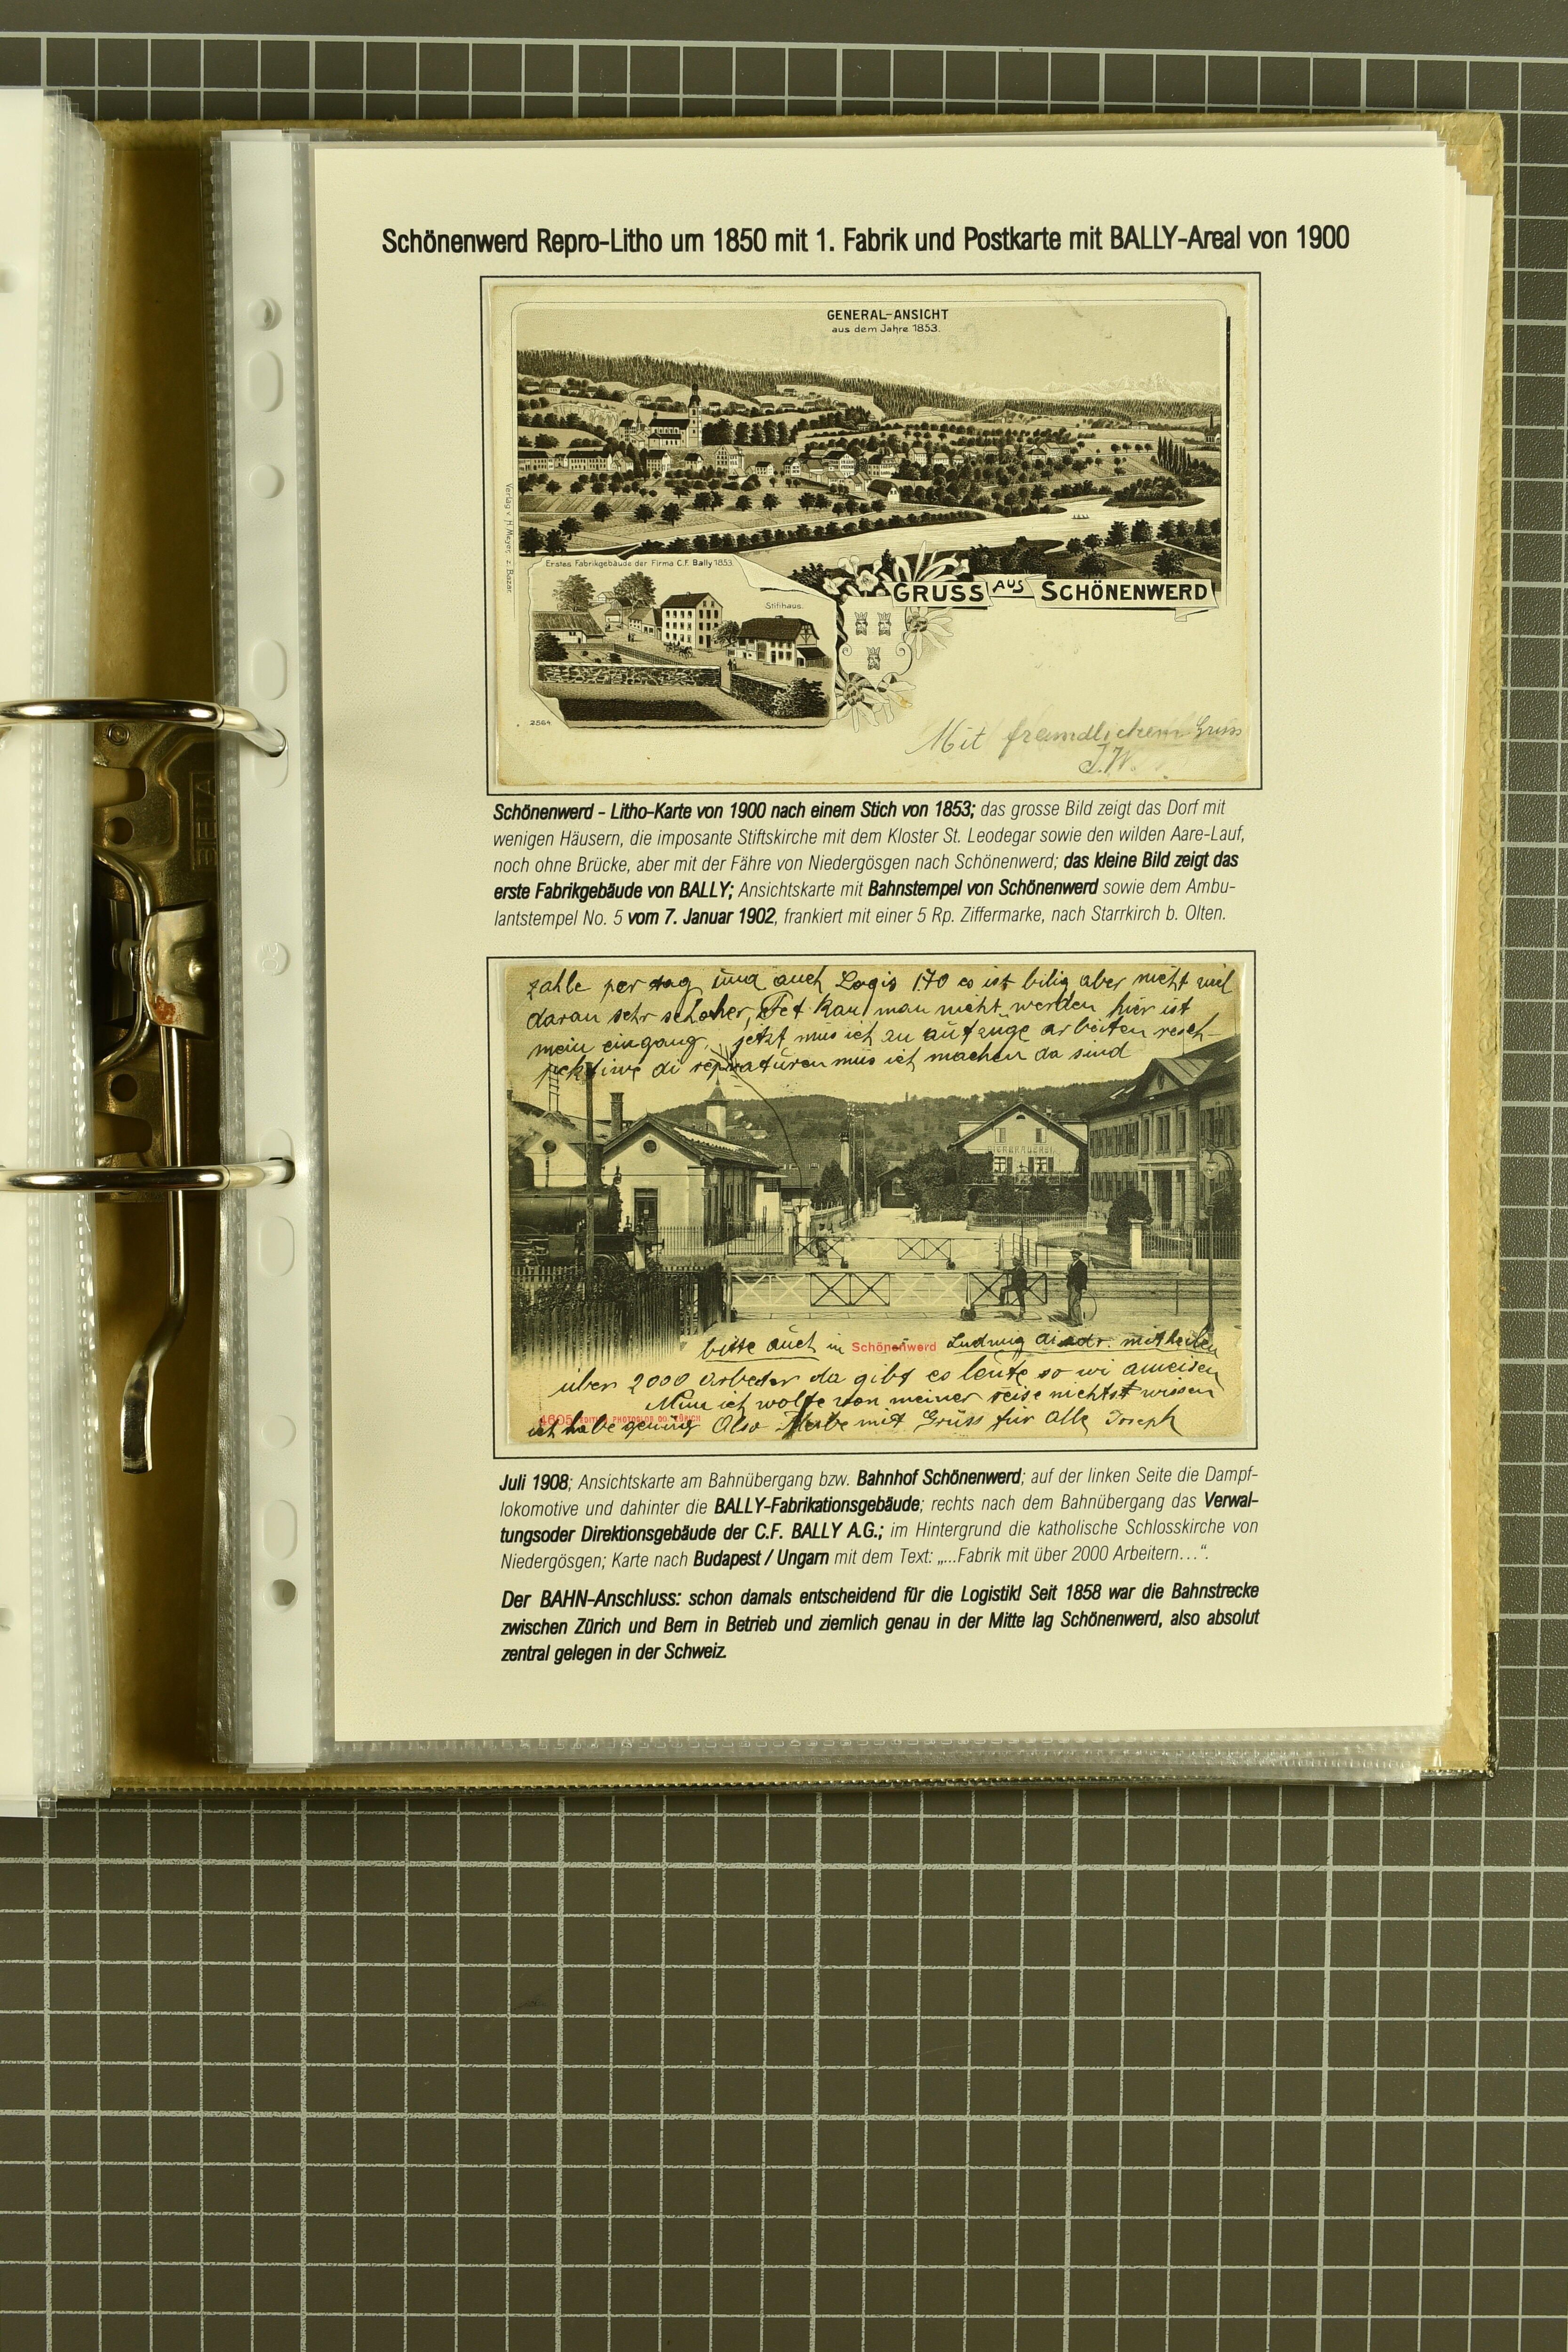 Schönenwerd Repro-Litho um 1850 mit 1. Fabrik und Postkarte mit BALLY-Areal von 1900
GENERAL-ANSICHT
aus dem Jahre 1853.
Verlag v. H. Meyer, z. Bazar.
Erstes Fabrikgebäude der Firma C.F. Bally 1853.
Stifthaus.
GRUSS AUS SCHÖNENWERD
2564
Mit freundlichem Gruss
J.W.
Schönenwerd - Litho-Karte von 1900 nach einem Stich von 1853; das grosse Bild zeigt das Dorf mit
wenigen Häusern, die imposante Stiftskirche mit dem Kloster St. Leodegar sowie den wilden Aare-Lauf,
noch ohne Brücke, aber mit der Fähre von Niedergösgen nach Schönenwerd; das kleine Bild zeigt das
erste Fabrikgebäude von BALLY; Ansichtskarte mit Bahnstempel von Schönenwerd sowie dem Ambu-
lantstempel No. 5 vom 7. Januar 1902, frankiert mit einer 5 Rp. Ziffermarke, nach Starrkirch b. Olten.
zahle per tag und auch Logis 1.70 es ist bilig aber nicht viel
daran sehr schoner, Fet kan man nicht werden hier ist
mein eingang. jetzt mus ich an aufzüge arbeiten resch-
pektiwe di reparaturen mus ich machen da sind
BIERBRAUEREI
bitte auch in Schönenwerd Ludwig di adr. mitheilen
über 2000 arbeiter da gibt es leute so wi ameisen
Nun ich wolte von meiner reise nichts wissen
4605 EDITION PHOTOGLOB CO. ZÜRICH
ich habe genug Also Mit Grüss für Alle Joseph
Juli 1908; Ansichtskarte am Bahnübergang bzw. Bahnhof Schönenwerd; auf der linken Seite die Dampf-
lokomotive und dahinter die BALLY-Fabrikationsgebäude; rechts nach dem Bahnübergang das Verwal-
tungsoder Direktionsgebäude der C.F. BALLY A.G.; im Hintergrund die katholische Schlosskirche von
Niedergösgen; Karte nach Budapest / Ungarn mit dem Text: „...Fabrik mit über 2000 Arbeitern...“.
Der BAHN-Anschluss: schon damals entscheidend für die Logistik! Seit 1858 war die Bahnstrecke
zwischen Zürich und Bern in Betrieb und ziemlich genau in der Mitte lag Schönenwerd, also absolut
zentral gelegen in der Schweiz.